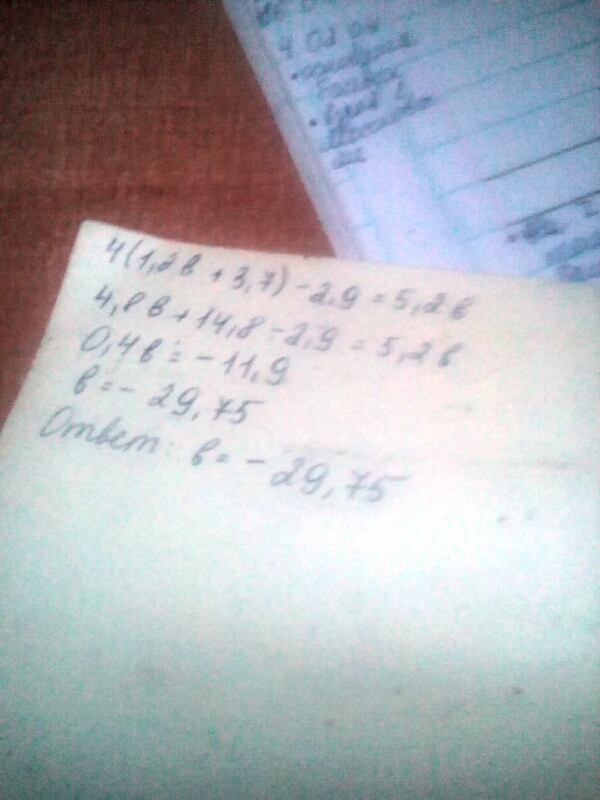 4 02 он
4(1,2в + 3,7) - 2,9 = 5,2в
4,8в + 14,8 - 2,9 = 5,2в
0,4в = - 11,9
в = - 29,75
Ответ: в = - 29,75